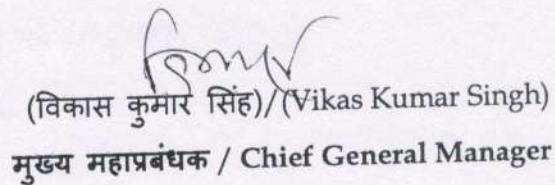 (विकास कुमार सिंह)/(Vikas Kumar Singh)
मुख्य महाप्रबंधक / Chief General Manager